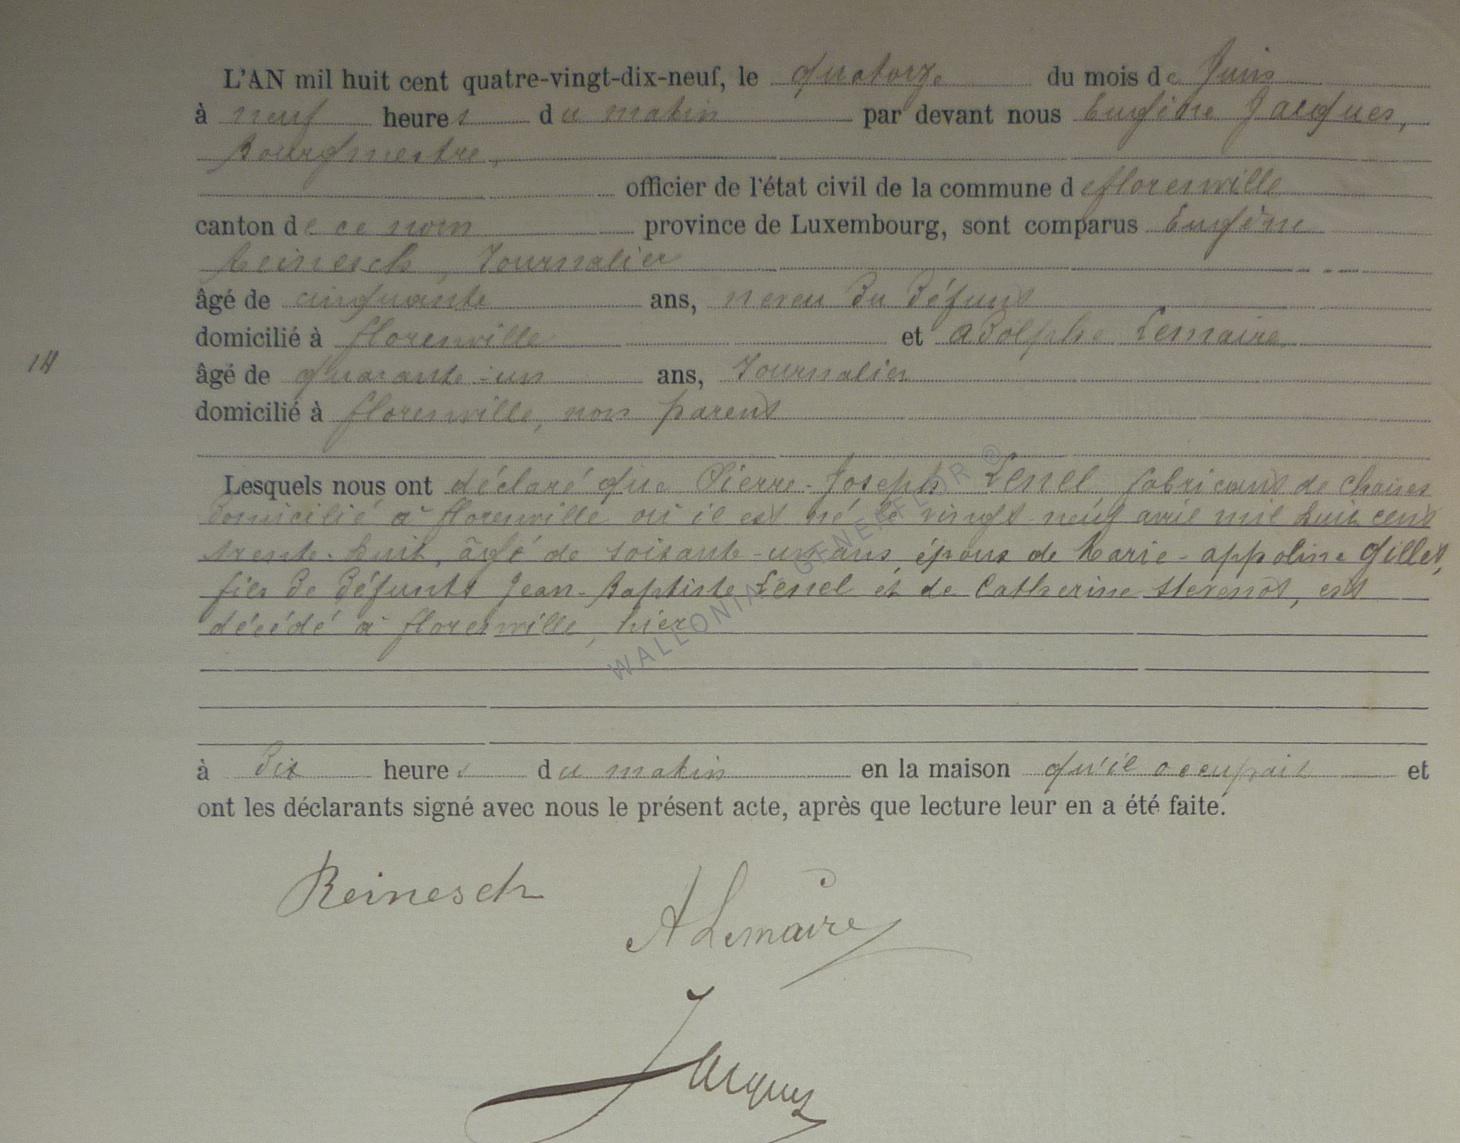 L'AN mil huit cent quatre-vingt-dix-neuf, le quatorze du mois de Juin
à neuf heures du matin par devant nous Eugène Jacques,
Bourgmestre,
officier de l'état civil de la commune de florenville
canton de ce nom province de Luxembourg, sont comparus Eugène
Reinesch, Journalier
âgé de cinquante ans, neveu du défunt
domicilié à florenville et adolphe Lemaire
14
âgé de quarante-un ans, Journalier
domicilié à florenville, non parent
Lesquels nous ont déclaré que Pierre-Joseph Lenel, fabricant de chaises
domicilié à florenville où il est né le vingt neuf avril mil huit cent
trente-huit, âgé de soixante-un ans, époux de Marie-appoline Gillet,
fils de défunts Jean-Baptiste Lenel et de Catherine Stevenot, est
décédé à florenville, hier
à dix heures du matin en la maison qu'il occupait et
ont les déclarants signé avec nous le présent acte, après que lecture leur en a été faite.
WALLONIA GENEAFLOR ©
Reinesch
A Lemaire
Jacques